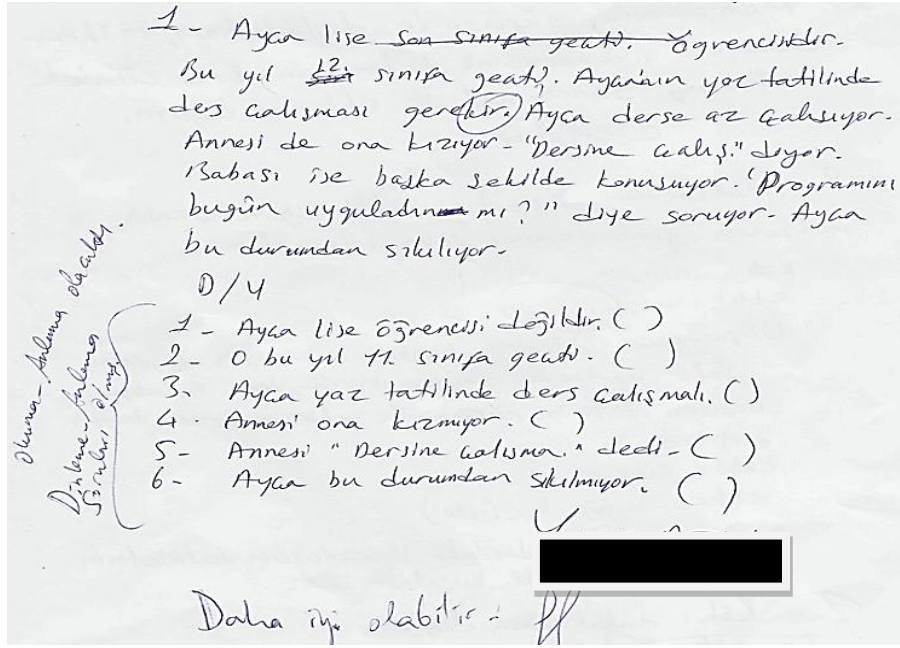 1- Ayça lise son sınıfa geçti. Öğrencisidir.
Bu yıl 12. sınıfa geçti. Ayça'nın yaz tatilinde
ders çalışması gerekir. Ayça derse az çalışıyor.
Annesi de ona kızıyor. "Dersine çalış." diyor.
Babası ise başka şekilde konuşuyor. "Programını
bugün uyguladın mı?" diye soruyor. Ayça
bu durumdan sıkılıyor.
D/Y
1- Ayça lise öğrencisi değildir. ( )
2- O bu yıl 11. sınıfa geçti. ( )
3. Ayça yaz tatilinde ders çalışmalı. ( )
4. Annesi ona kızmıyor. ( )
5- Annesi "Dersine çalışma." dedi. ( )
6- Ayça bu durumdan sıkılmıyor. ( )
Okuma-Anlama olacaktı.
Dinleme-Anlama
Soruları olmuş
Daha iyi olabilir.